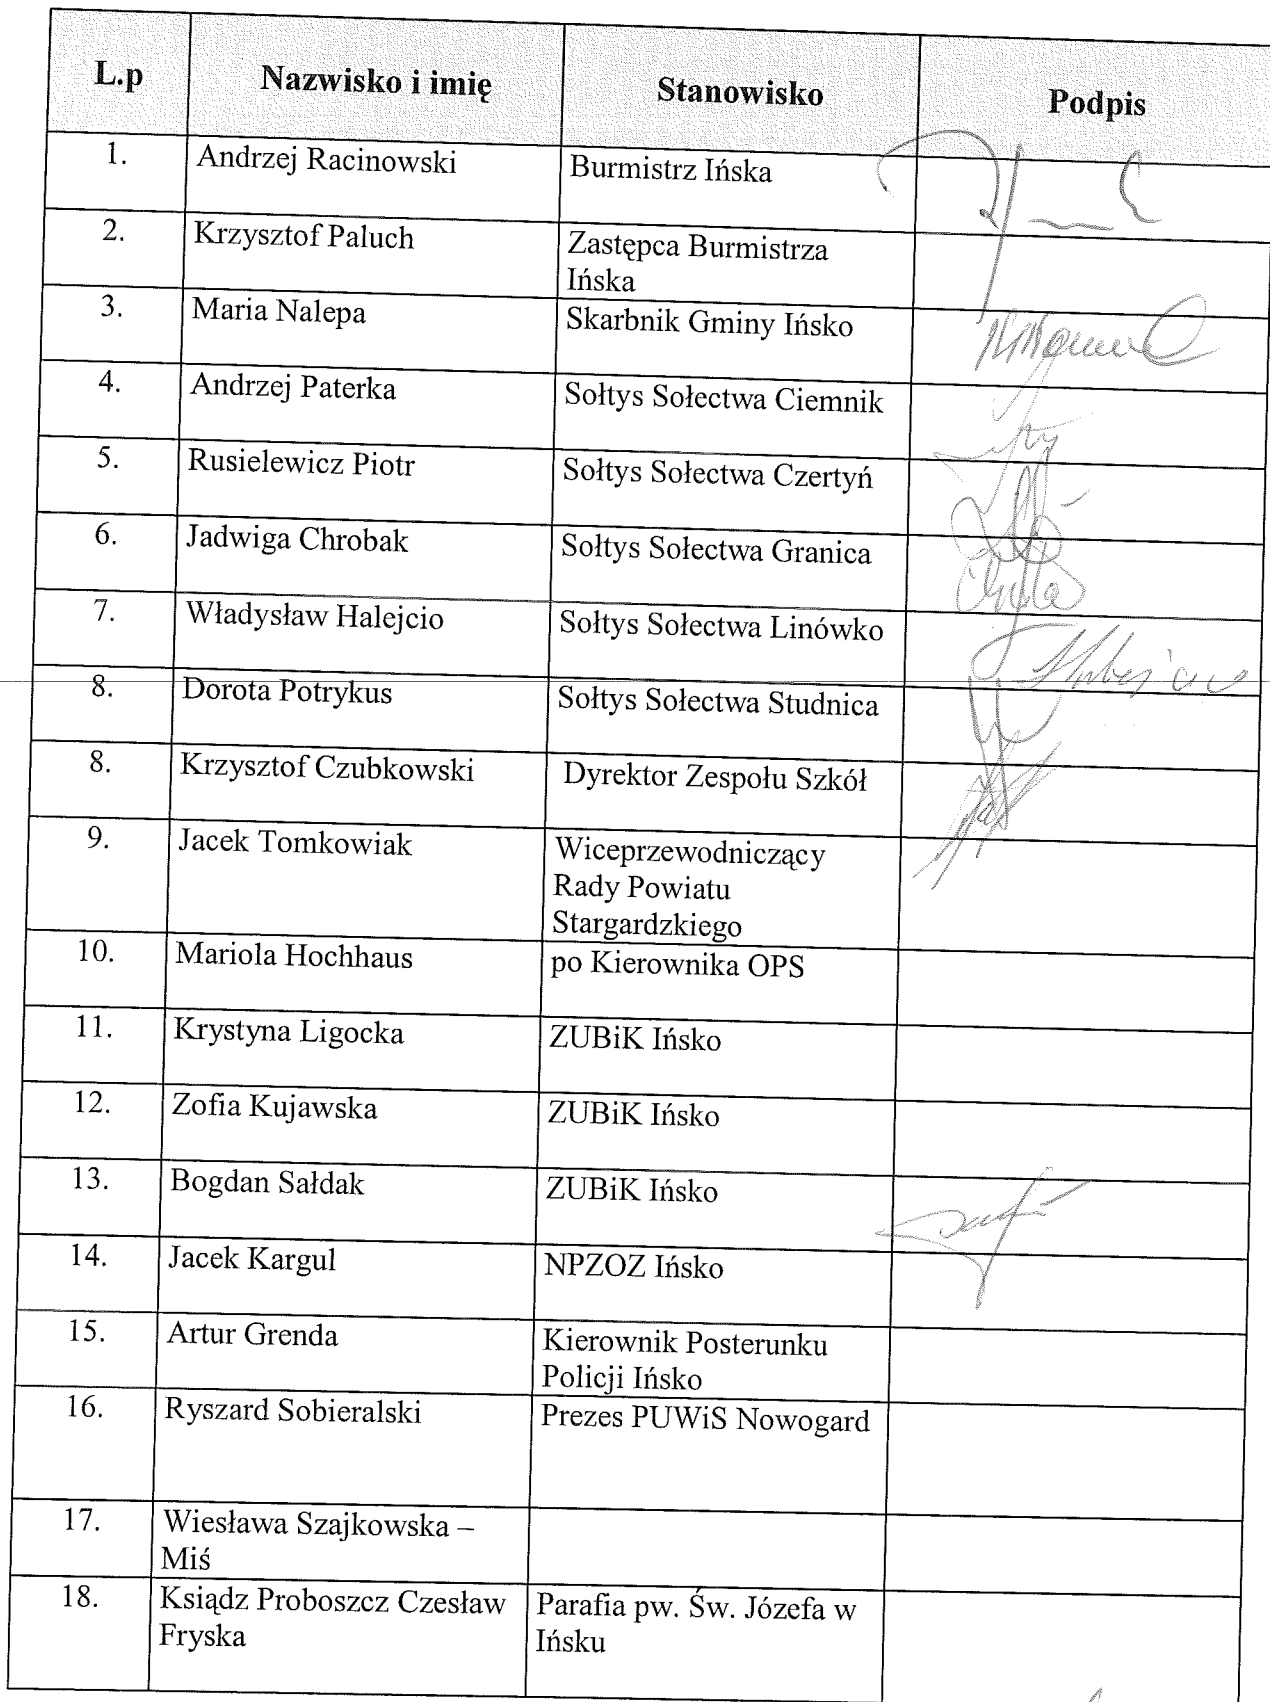 L.p Nazwisko i imię Stanowisko Podpis
1. Andrzej Racinowski Burmistrz Ińska
2. Krzysztof Paluch Zastępca Burmistrza
Ińska
3. Maria Nalepa Skarbnik Gminy Ińsko
4. Andrzej Paterka Sołtys Sołectwa Ciemnik
5. Rusielewicz Piotr Sołtys Sołectwa Czertyń
6. Jadwiga Chrobak Sołtys Sołectwa Granica
7. Władysław Halejcio Sołtys Sołectwa Linówko
8. Dorota Potrykus Sołtys Sołectwa Studnica
8. Krzysztof Czubkowski Dyrektor Zespołu Szkół
9. Jacek Tomkowiak Wiceprzewodniczący
Rady Powiatu
Stargardzkiego
10. Mariola Hochhaus po Kierownika OPS
11. Krystyna Ligocka ZUBiK Ińsko
12. Zofia Kujawska ZUBiK Ińsko
13. Bogdan Sałdak ZUBiK Ińsko
14. Jacek Kargul NPZOZ Ińsko
15. Artur Grenda Kierownik Posterunku
Policji Ińsko
16. Ryszard Sobieralski Prezes PUWiS Nowogard
17. Wiesława Szajkowska –
Miś
18. Ksiądz Proboszcz Czesław Parafia pw. Św. Józefa w
Fryska Ińsku